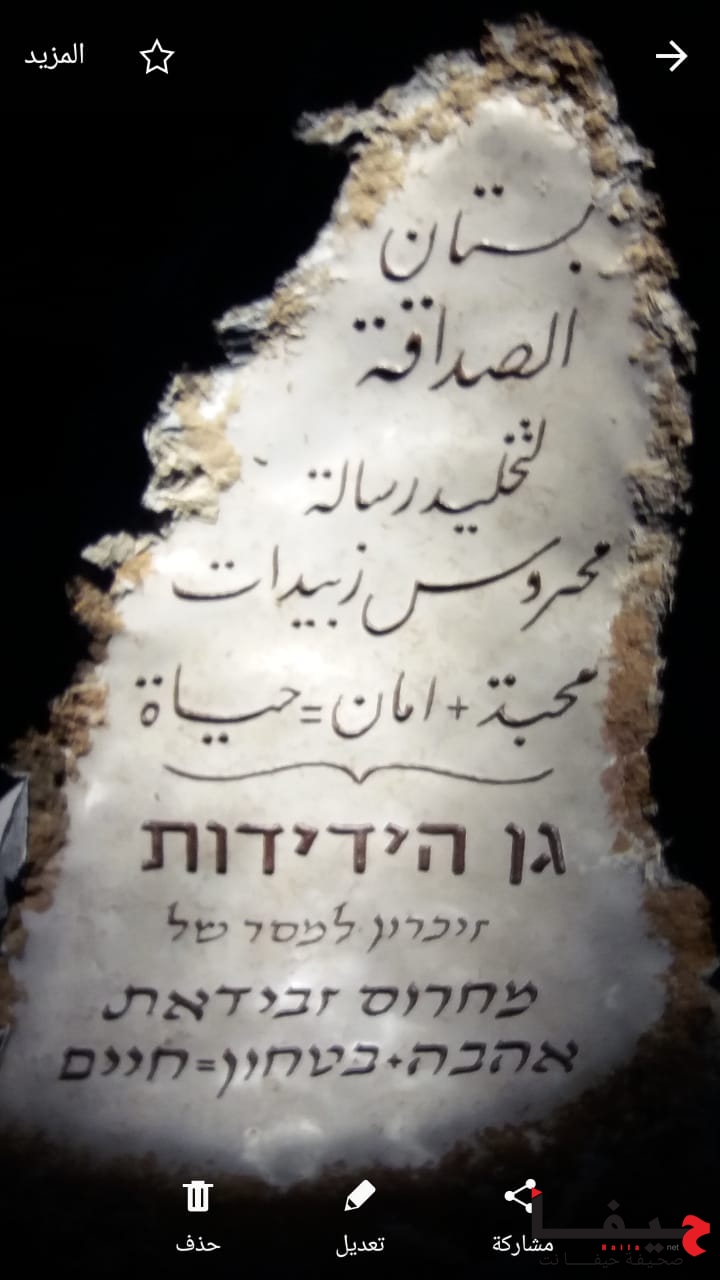 المزيد
بستان
الصداقة
لتخليد رسالة
محروس زبيدات
محبة + امان = حياة
גן הידידות
זיכרון למסר של
מחרוס זבידאת
אהבה+בטחון=חיים
حذف
تعديل
مشاركة
حيفا
Haifa net
صحيفة حيفا نت